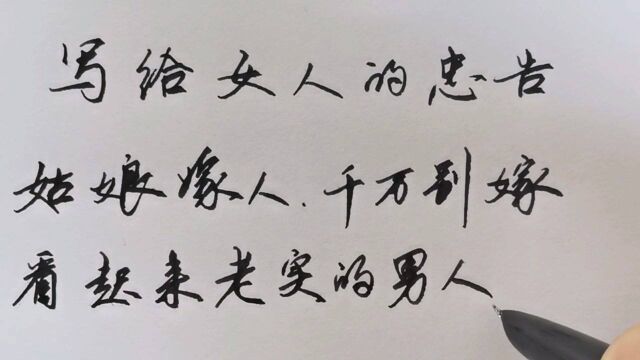 写给女人的忠告
姑娘嫁人.千万别嫁
看起来老实的男人